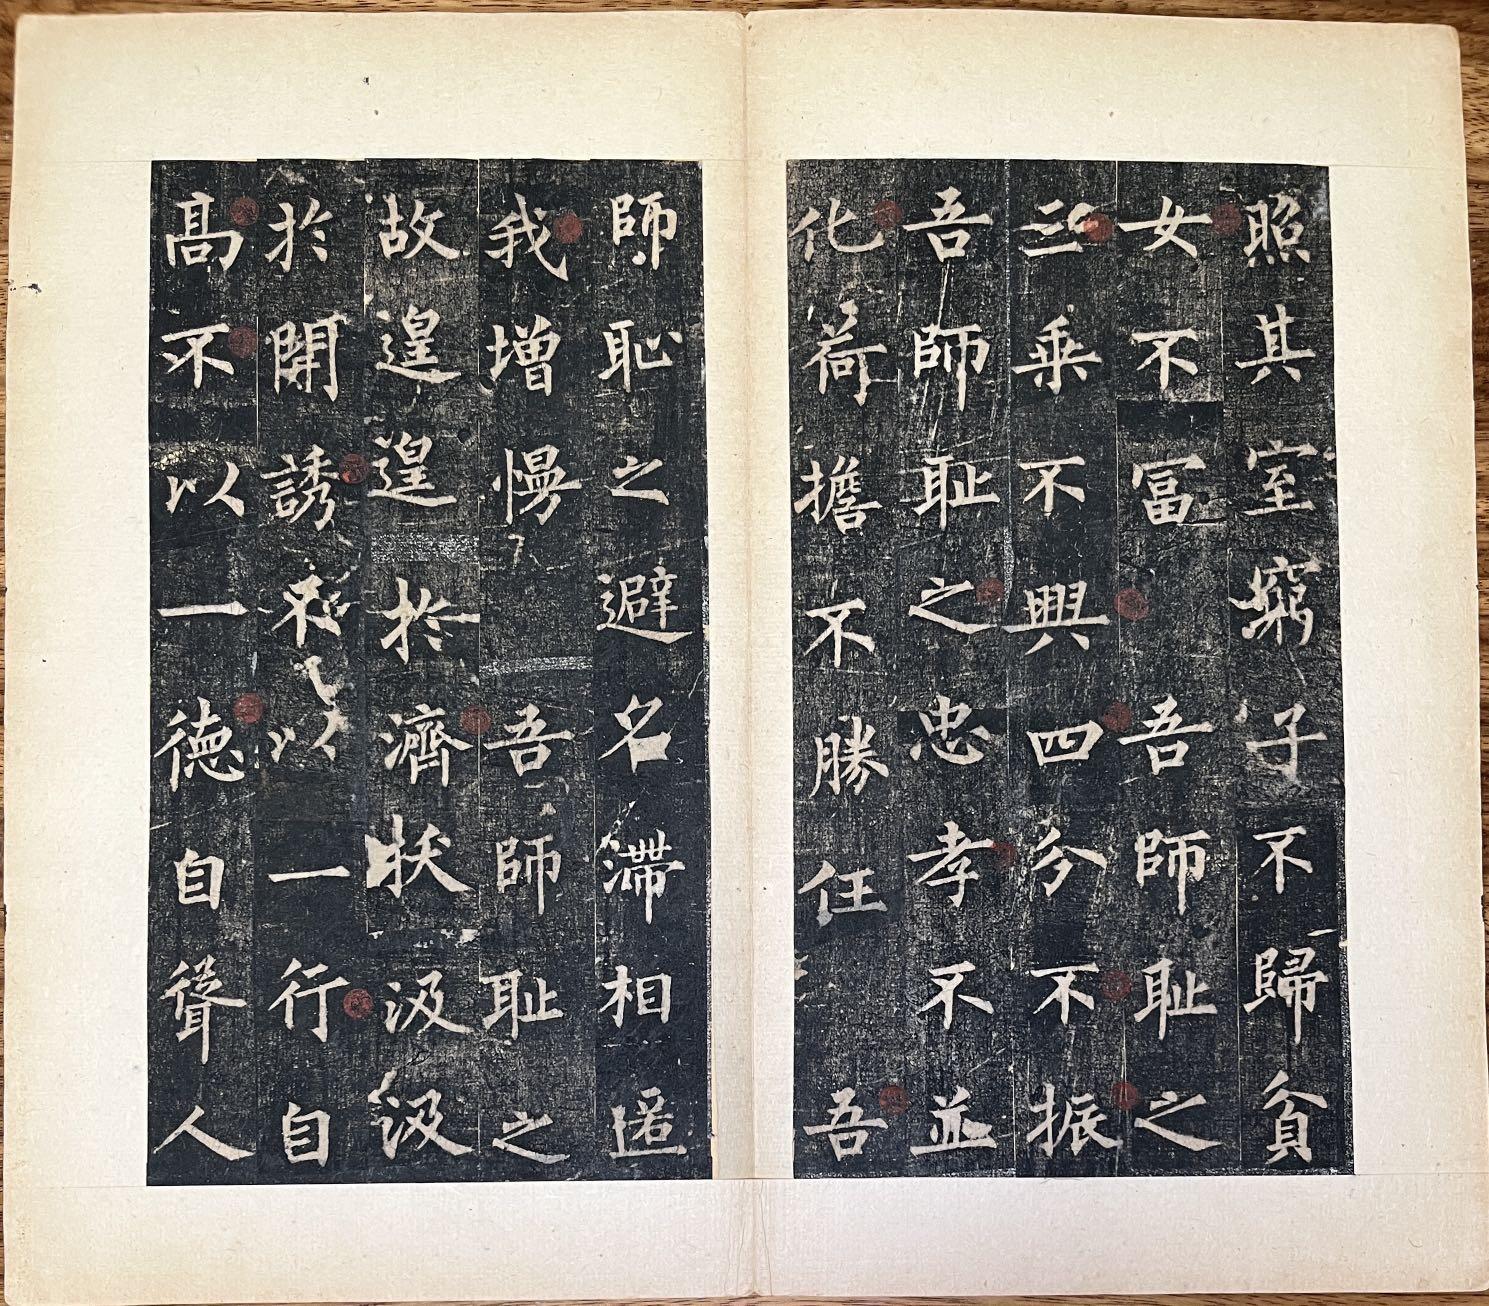 照其室窮子不歸貧
女不冨吾師耻之
三乗不興四分不振
吾師耻之忠孝不並
化荷擔不勝任吾
師恥之避名滯相匿
我增慢吾師耻之
故遑遑扵濟拔汲汲
扵開誘不以一行自
髙不以一徳自聳人